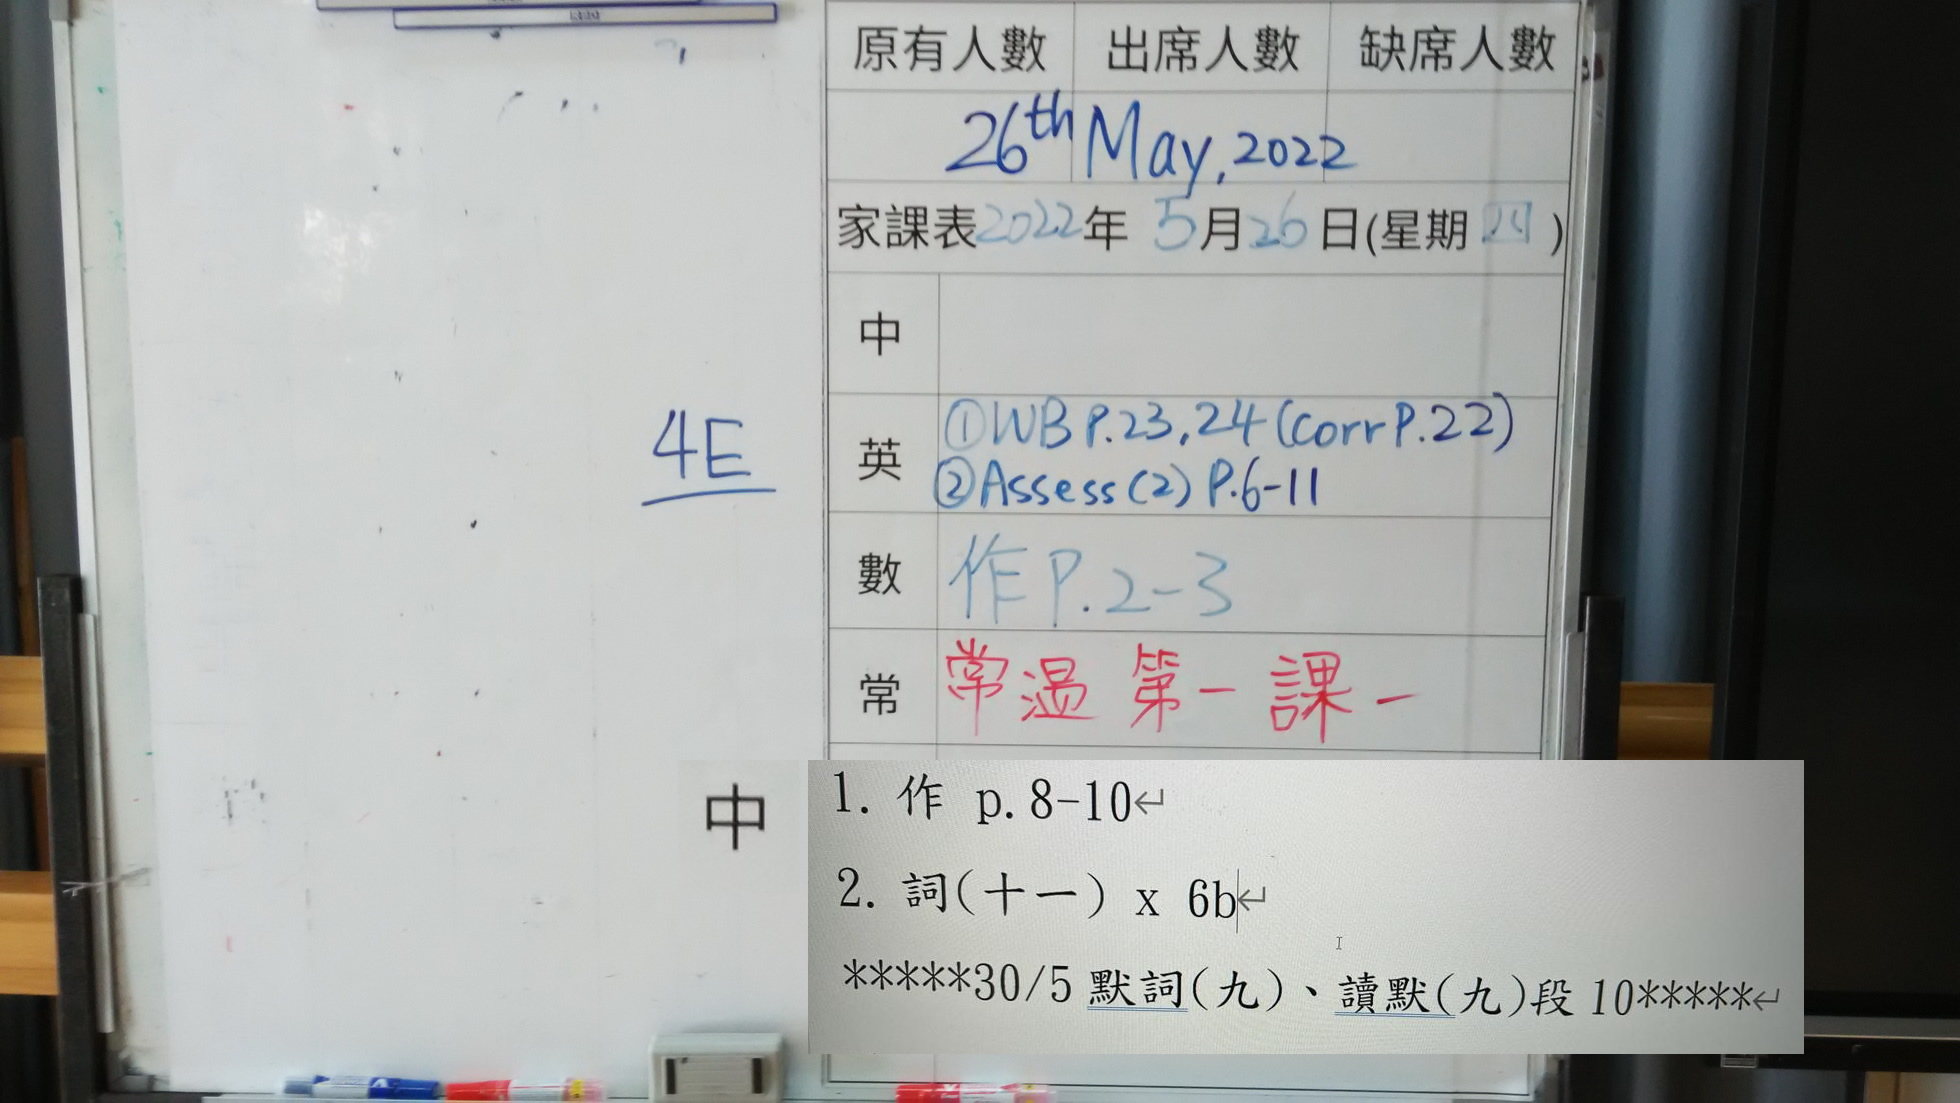 原有人數 出席人數 缺席人數
26th May, 2022
家課表2022年 5月26日(星期四)
中
4E
英 ①WB P.23,24 (Corr P.22)
②Assess(2) P.6-11
數 作P.2-3
常 常温 第一課一
中 1. 作 p.8-10↵
2. 詞(十一) x 6b↵
*****30/5 默詞(九)、讀默(九)段 10*****↵